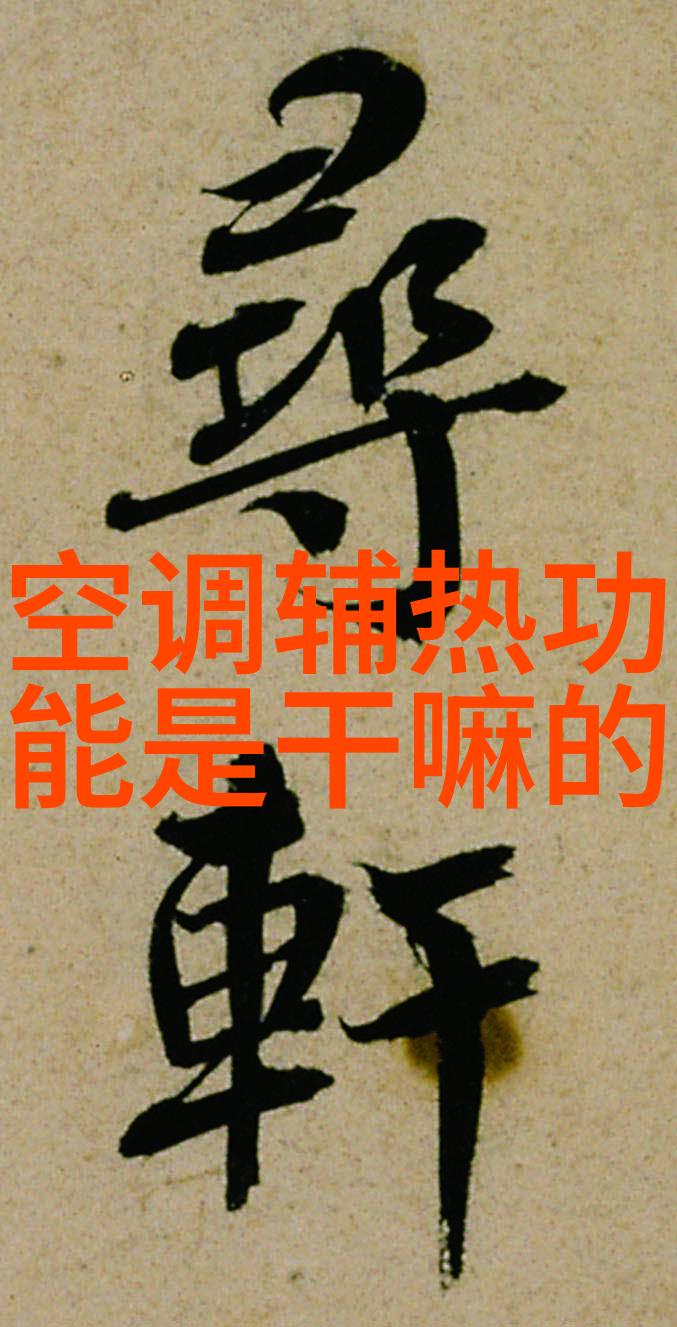 尋
空调辅热功
能是干嘛的
軒